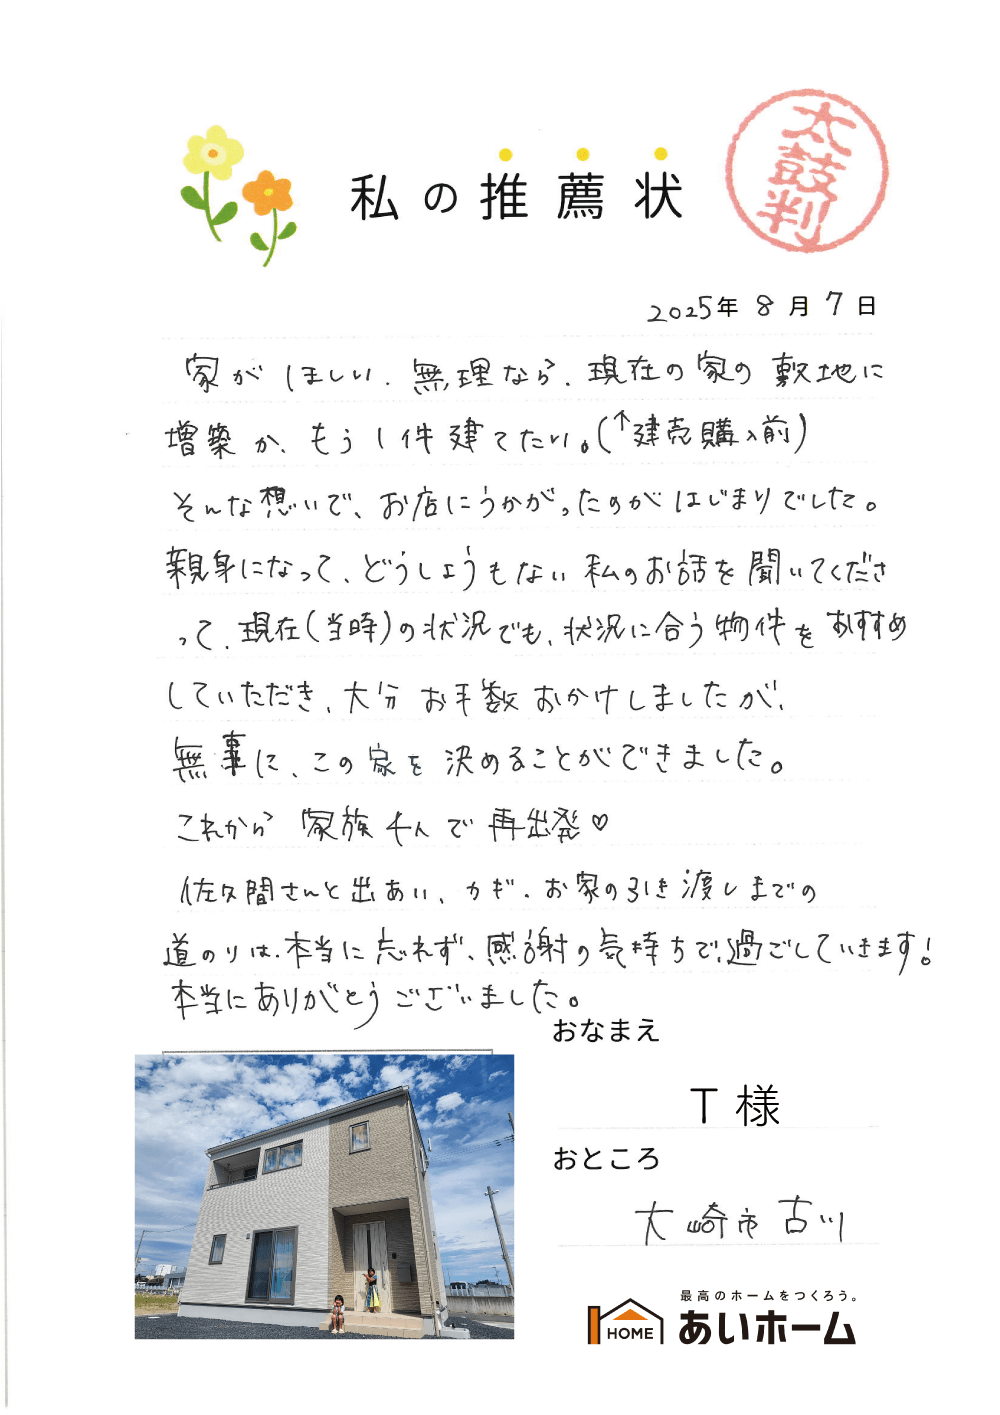 私の推薦状
太鼓判
2025年8月7日
家がほしい.無理なら、現在の家の敷地に
増築か、もう1件建てたい。(↑建売購入前)
そんな想いで、お店にうかがったのがはじまりでした。
親身になって、どうしようもない私のお話を聞いてくださ
って、現在(当時)の状況でも、状況に合う物件をおすすめ
していただき、大分お手数おかけしましたが、
無事に、この家を決めることができました。
これから家族4人で再出発♡
佐久間さんと出あい、カギ・お家の引き渡しまでの
道のりは、本当に忘れず、感謝の気持ちで、過ごしていきます!
本当にありがとうございました。
おなまえ
T様
おところ
大崎市古川
最高のホームをつくろう。
HOME あいホーム